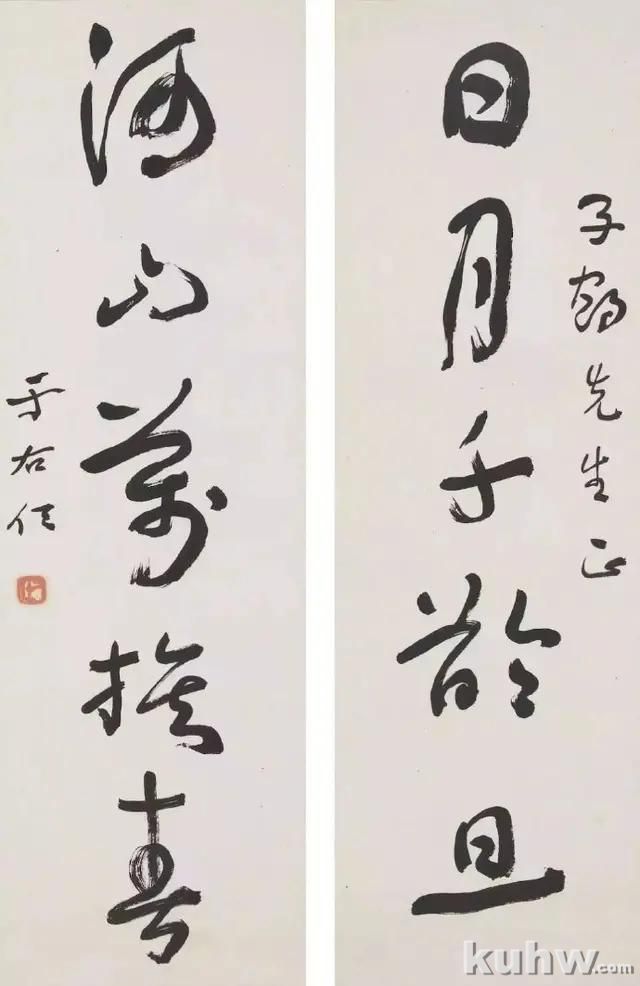 子鶴先生正
日月千齡旦
河山萬族春
于右任
kuhw.com